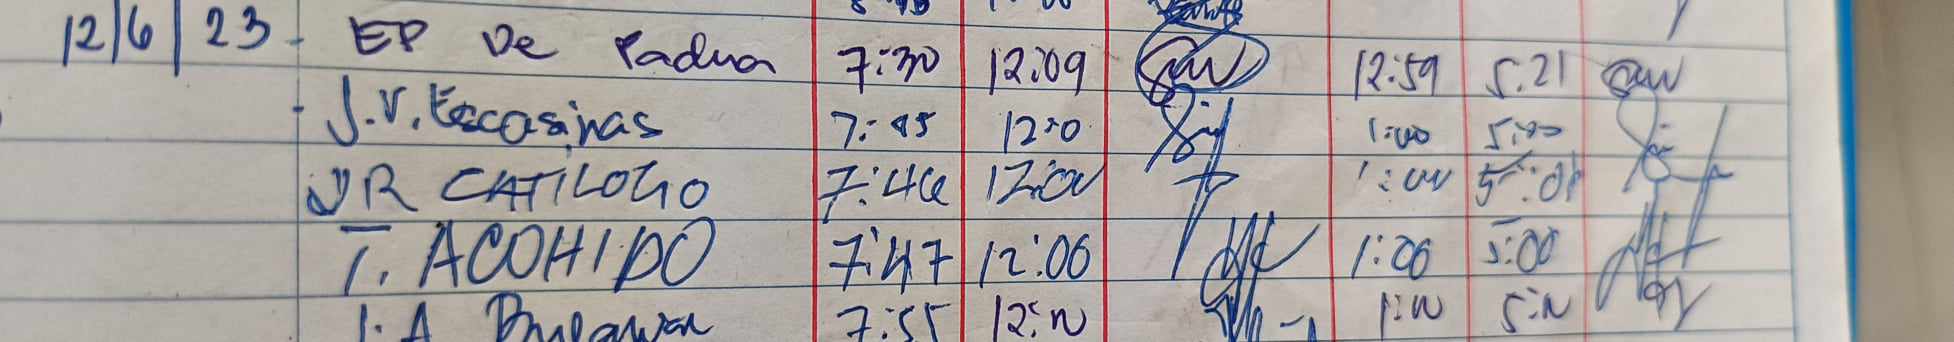 12/6/23 - EP De Padua 7:30 12:09 12:59 5:21
J.V. Escasinas 7:45 12:0 1:00 5:00
JR CATILOGO 7:46 12:00 1:00 5:01
T. ACOHIDO 7:47 12:06 1:06 5:00
I. A 7:55 12:00 1:00 5:00